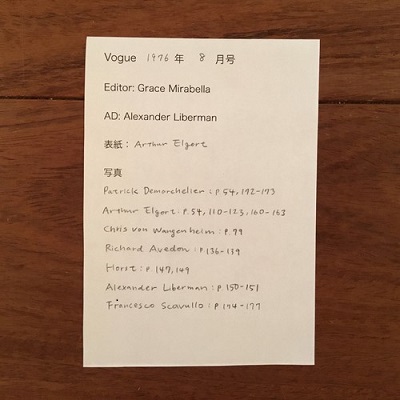 Vogue 1976 年 8 月号
Editor: Grace Mirabella
AD: Alexander Liberman
表紙： Arthur Elgort
写真
Patrick Demarchelier : P.54, 172-173
Arthur Elgort : P.54, 110-123, 160-163
Chris von Wangenheim : P.99
Richard Avedon : P.136-139
Horst : P.147, 149
Alexander Liberman : P.150-151
Francesco Scavullo : P.174-177